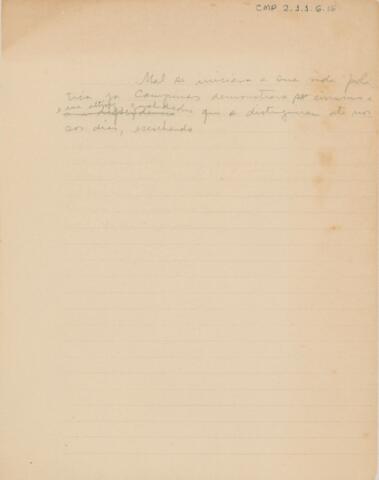 CMP 2.1.1.6.15
Mal se iniciara a sua vida polí
tica já Campinas demonstrara
e sua altivez qualidades que a distinguiram até nos
sos dias, escrevendo